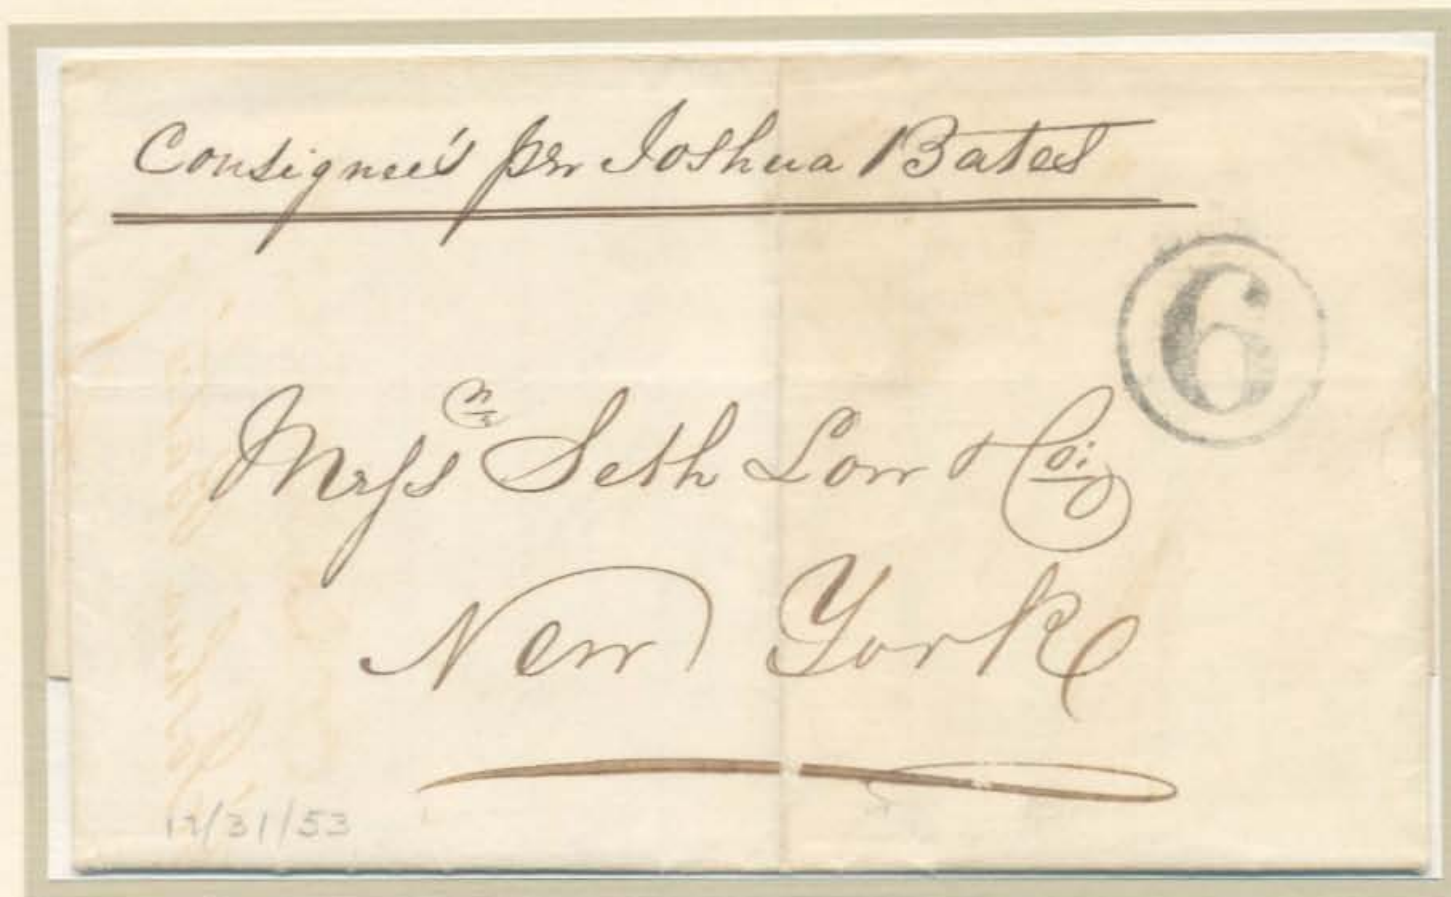 Consignee's per Joshua Bates
6
Messrs Seth Low & Co.
New York
12/31/53